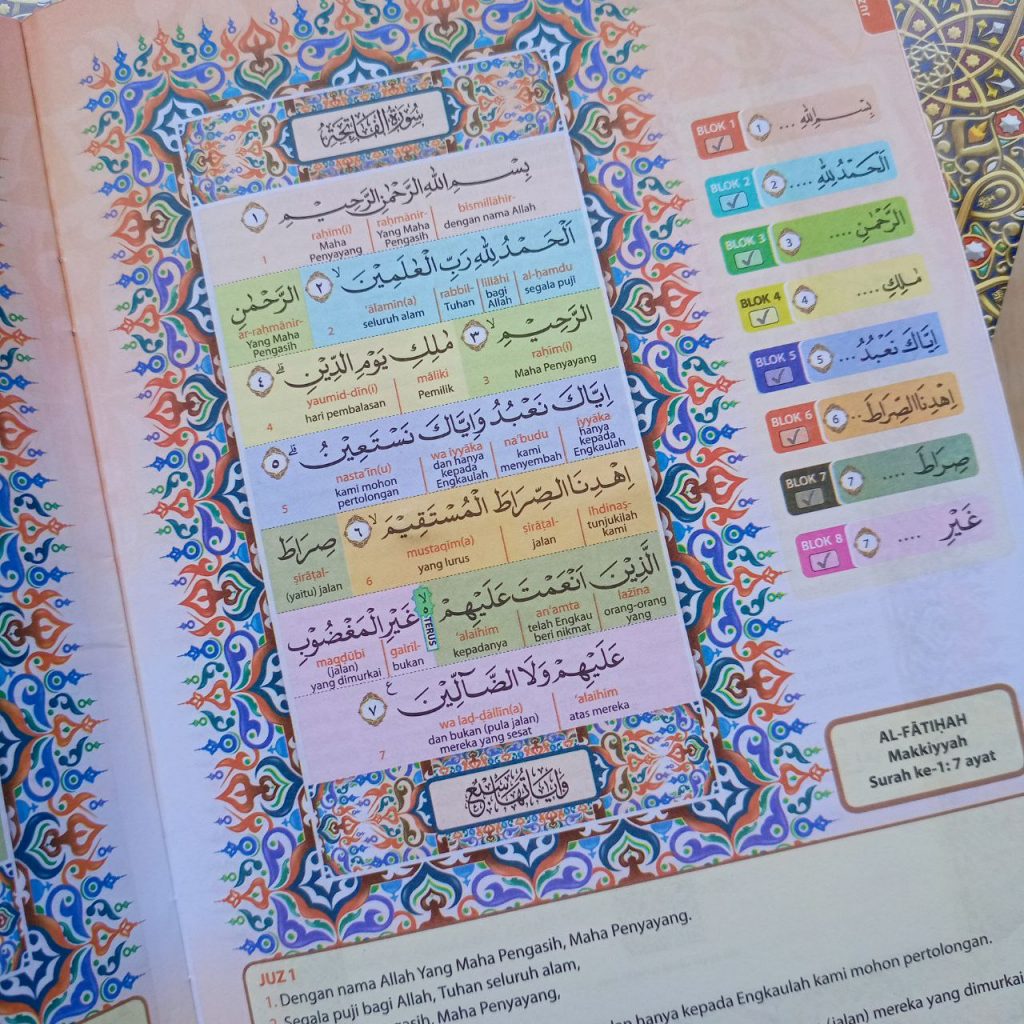 سُوْرَةُ الْفَاتِحَةِ
بِسْمِ اللّٰهِ الرَّحْمٰنِ الرَّحِيْمِ ١
bismillāhir- rahmānir- rahīm(i)
dengan nama Allah Yang Maha Pengasih Maha Penyayang
1
اَلْحَمْدُ لِلّٰهِ رَبِّ الْعٰلَمِيْنَۙ ٢ الرَّحْمٰنِ
al-ḥamdu lillāhi rabbil- 'ālamīn(a) ar-rahmānir-
segala puji bagi Allah Tuhan seluruh alam Yang Maha Pengasih
2
الرَّحِيْمِۙ ٣ مٰلِكِ يَوْمِ الدِّيْنِۗ ٤
raḥīm(i) māliki yaumid-dīn(i)
Maha Penyayang Pemilik hari pembalasan
3 4
اِيَّاكَ نَعْبُدُ وَاِيَّاكَ نَسْتَعِيْنُۗ ٥
iyyāka na'budu wa iyyāka nasta'īn(u)
hanya kepada Engkaulah kami menyembah dan hanya kepada Engkaulah kami mohon pertolongan
5
اِهْدِنَا الصِّرَاطَ الْمُسْتَقِيْمَۙ ٦ صِرَاطَ
Ihdinaṣ- ṣirāṭal- mustaqīm(a) ṣirāṭal-
tunjukilah kami jalan yang lurus (yaitu) jalan
6
الَّذِيْنَ اَنْعَمْتَ عَلَيْهِمْ ەۙ غَيْرِ الْمَغْضُوْبِ
TERUS
lażina an'amta 'alaihim gairil- magḍūbi
orang-orang yang telah Engkau beri nikmat kepadanya bukan (jalan) yang dimurkai
عَلَيْهِمْ وَلَا الضَّاۤلِّيْنَ ࣖ ٧
'alaihim wa laḍ-ḍāllīn(a)
atas mereka dan bukan (pula jalan) mereka yang sesat
7
وَاٰيَاتُهَا سَبْعٌ
BLOK 1 1 بِسْمِ اللّٰهِ ...
BLOK 2 2 اَلْحَمْدُ لِلّٰهِ ....
BLOK 3 3 الرَّحْمٰنِ ....
BLOK 4 4 مٰلِكِ .....
BLOK 5 5 اِيَّاكَ نَعْبُدُ ...
BLOK 6 6 اِهْدِنَا الصِّرَاطَ ...
BLOK 7 7 صِرَاطَ ....
BLOK 8 7 غَيْرِ ....
AL-FĀTIḤAH
Makkiyyah
Surah ke-1: 7 ayat
JUZ 1
1. Dengan nama Allah Yang Maha Pengasih, Maha Penyayang.
2. Segala puji bagi Allah, Tuhan seluruh alam,
Maha Penyayang,
hanya kepada Engkaulah kami mohon pertolongan.
(jalan) mereka yang dimurkai